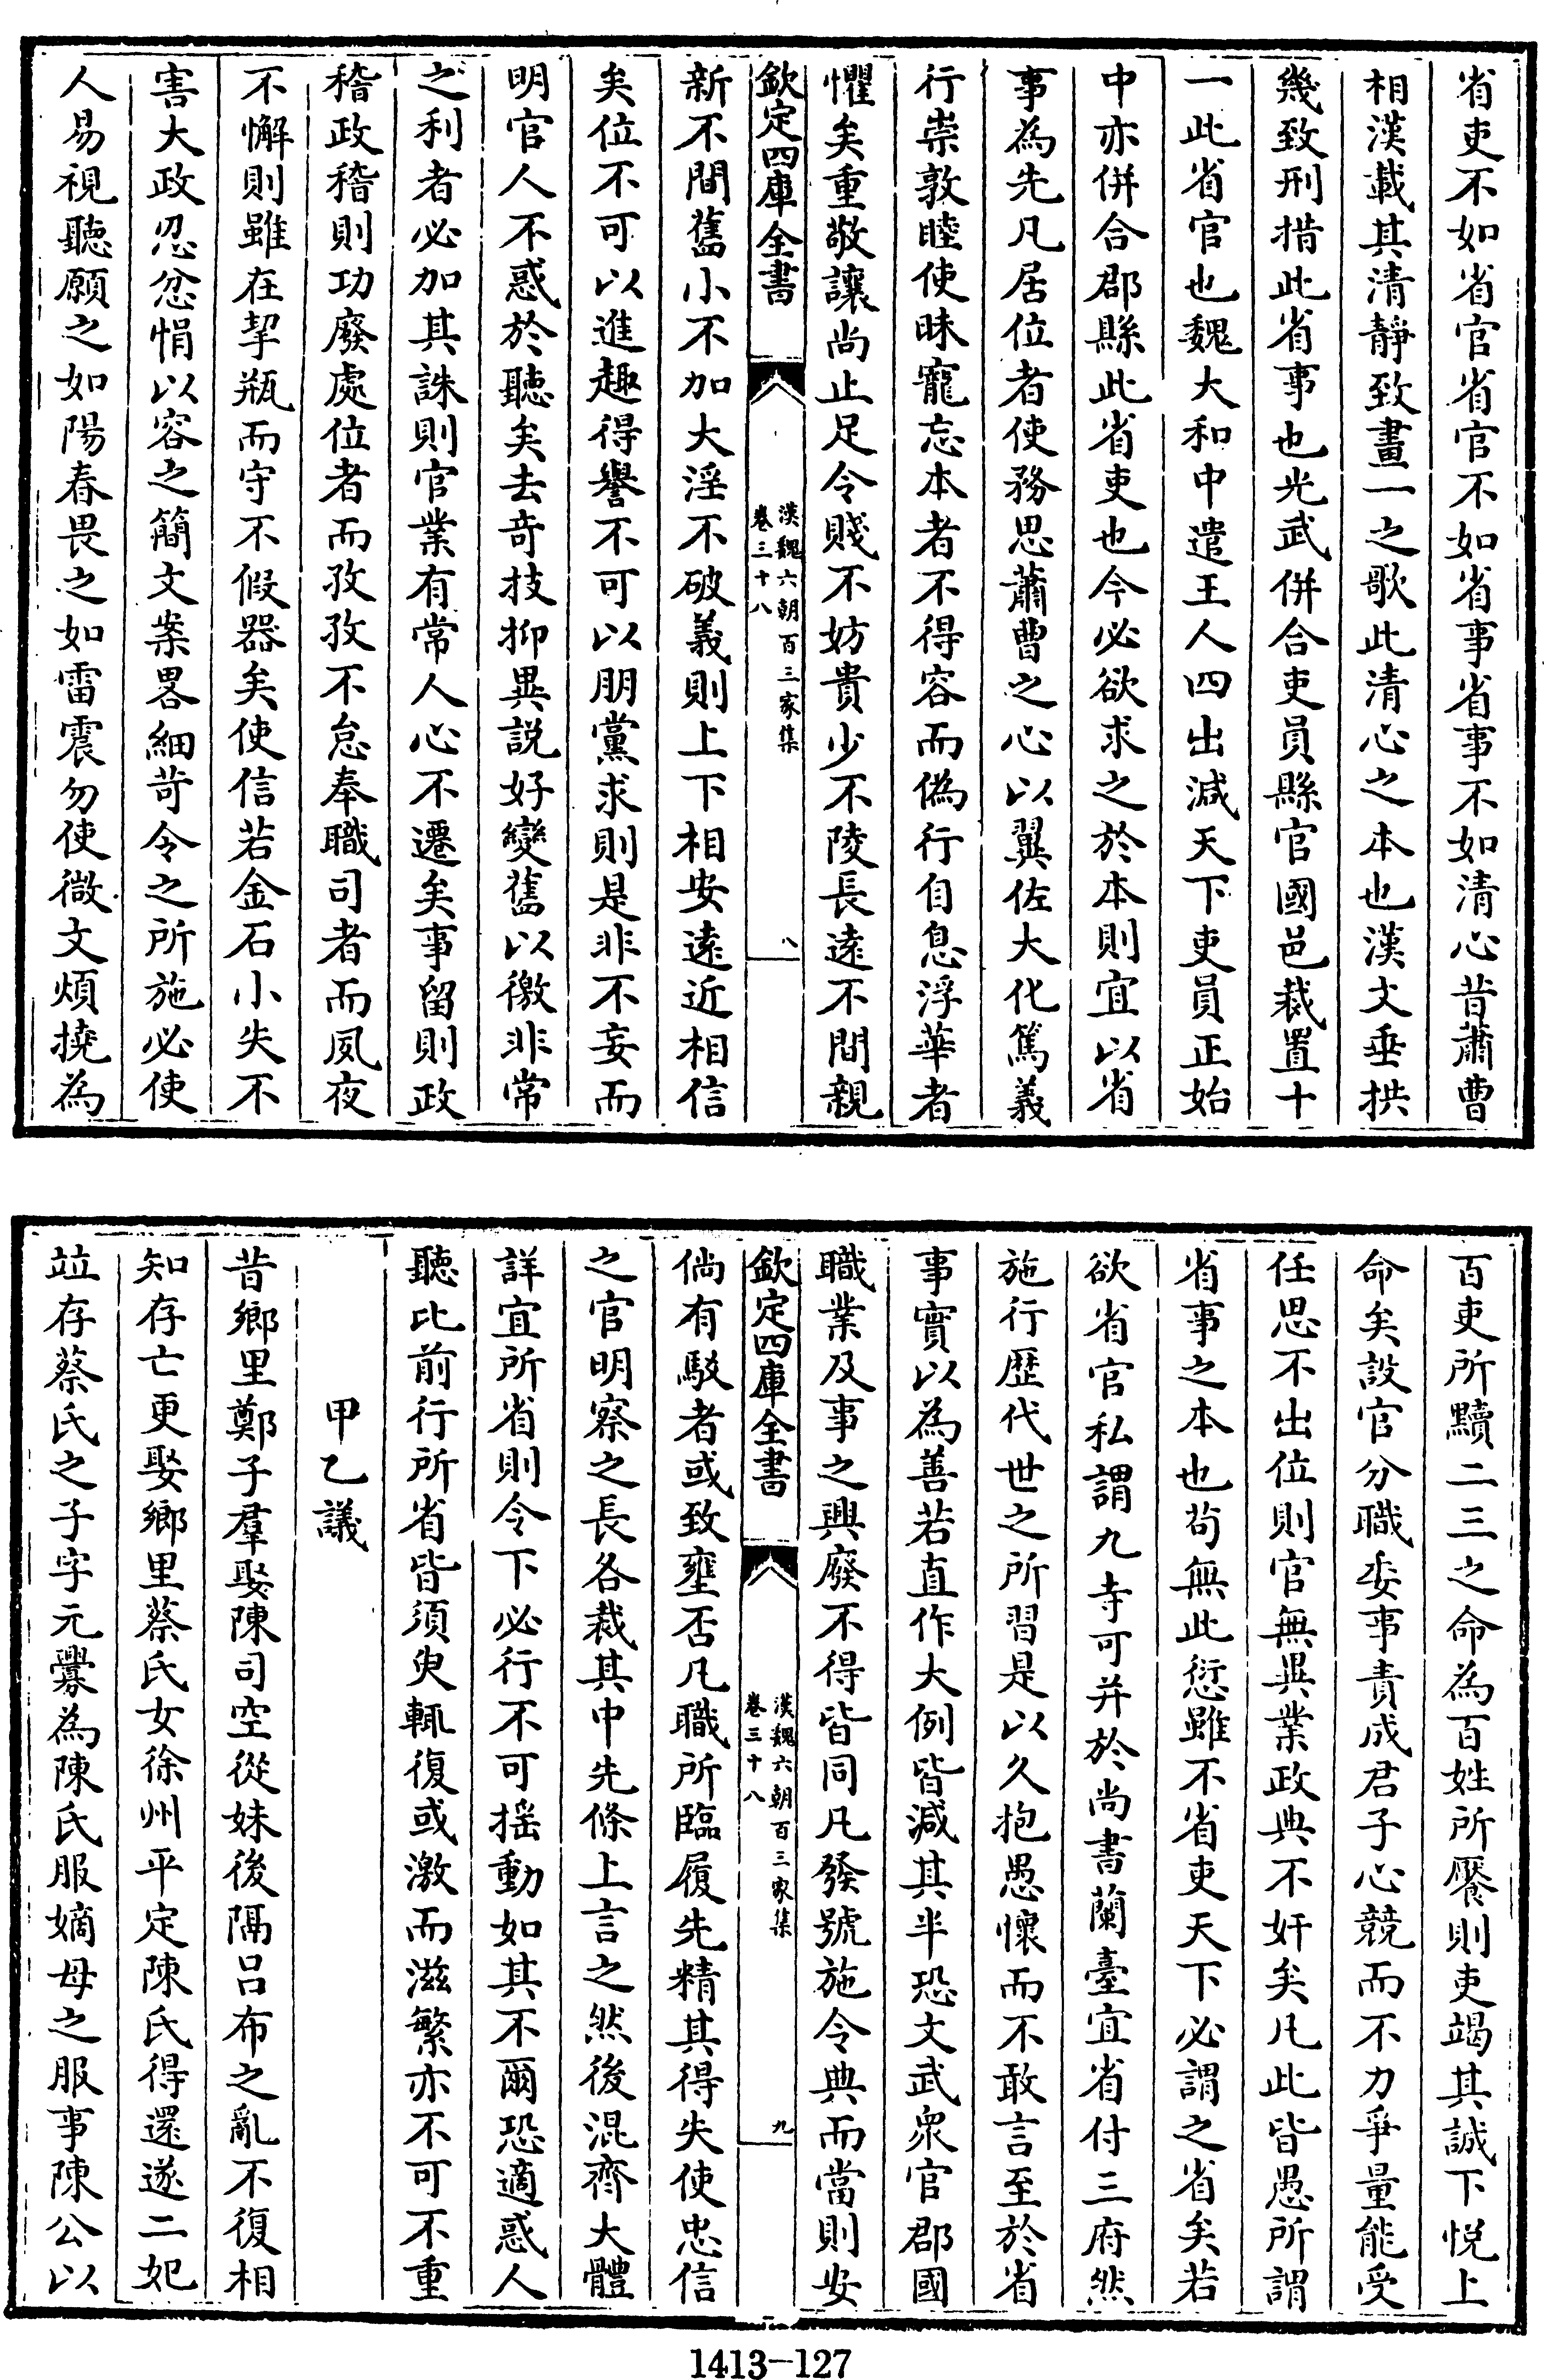 省吏不如省官省官不如省事省事不如清心昔蕭曹
相漢載其清靜致畫一之歌此清心之本也漢文垂拱
幾致刑措此省事也光武併合吏員縣官國邑裁置十
一此省官也魏大和中遣王人四出減天下吏員正始
中亦併合郡縣此省吏也今必欲求之於本則宜以省
事為先凡居位者使務思蕭曹之心以翼佐大化篤義
行崇敦睦使昧寵忘本者不得容而偽行自息浮華者
懼矣重敬讓尚止足令賤不妨貴少不陵長遠不間親
欽定四庫全書
漢魏六朝百三家集
卷三十八
八
新不間舊小不加大淫不破義則上下相安遠近相信
矣位不可以進趣得譽不可以朋黨求則是非不妄而
明官人不惑於聽矣去奇技抑異說好變舊以徼非常
之利者必加其誅則官業有常人心不遷矣事留則政
稽政稽則功廢處位者而孜孜不怠奉職司者而夙夜
不懈則雖在挈瓶而守不假器矣使信若金石小失不
害大政忍忿悁以容之簡文案畧細苛令之所施必使
人易視聽願之如陽春畏之如雷震勿使微文煩撓為
百吏所黷二三之命為百姓所饜則吏竭其誠下悅上
命矣設官分職委事責成君子心競而不力爭量能受
任思不出位則官無異業政典不奸矣凡此皆愚所謂
省事之本也苟無此愆雖不省吏天下必謂之省矣若
欲省官私謂九寺可并於尚書蘭臺宜省付三府然
施行歷代世之所習是以久抱愚懷而不敢言至於省
事實以為善若直作大例皆減其半恐文武眾官郡國
職業及事之興廢不得皆同凡發號施令典而當則安
欽定四庫全書
漢魏六朝百三家集
卷三十八
九
倘有駁者或致壅否凡職所臨履先精其得失使忠信
之官明察之長各裁其中先條上言之然後混齊大體
詳宜所省則令下必行不可搖動如其不爾恐適惑人
聽比前行所省皆須臾輒復或激而滋繁亦不可不重
甲乙議
昔鄉里鄭子羣娶陳司空從妹後隔呂布之亂不復相
知存亡更娶鄉里蔡氏女徐州平定陳氏得還遂二妃
竝存蔡氏之子字元釁為陳氏服嫡母之服事陳公以
1413-127